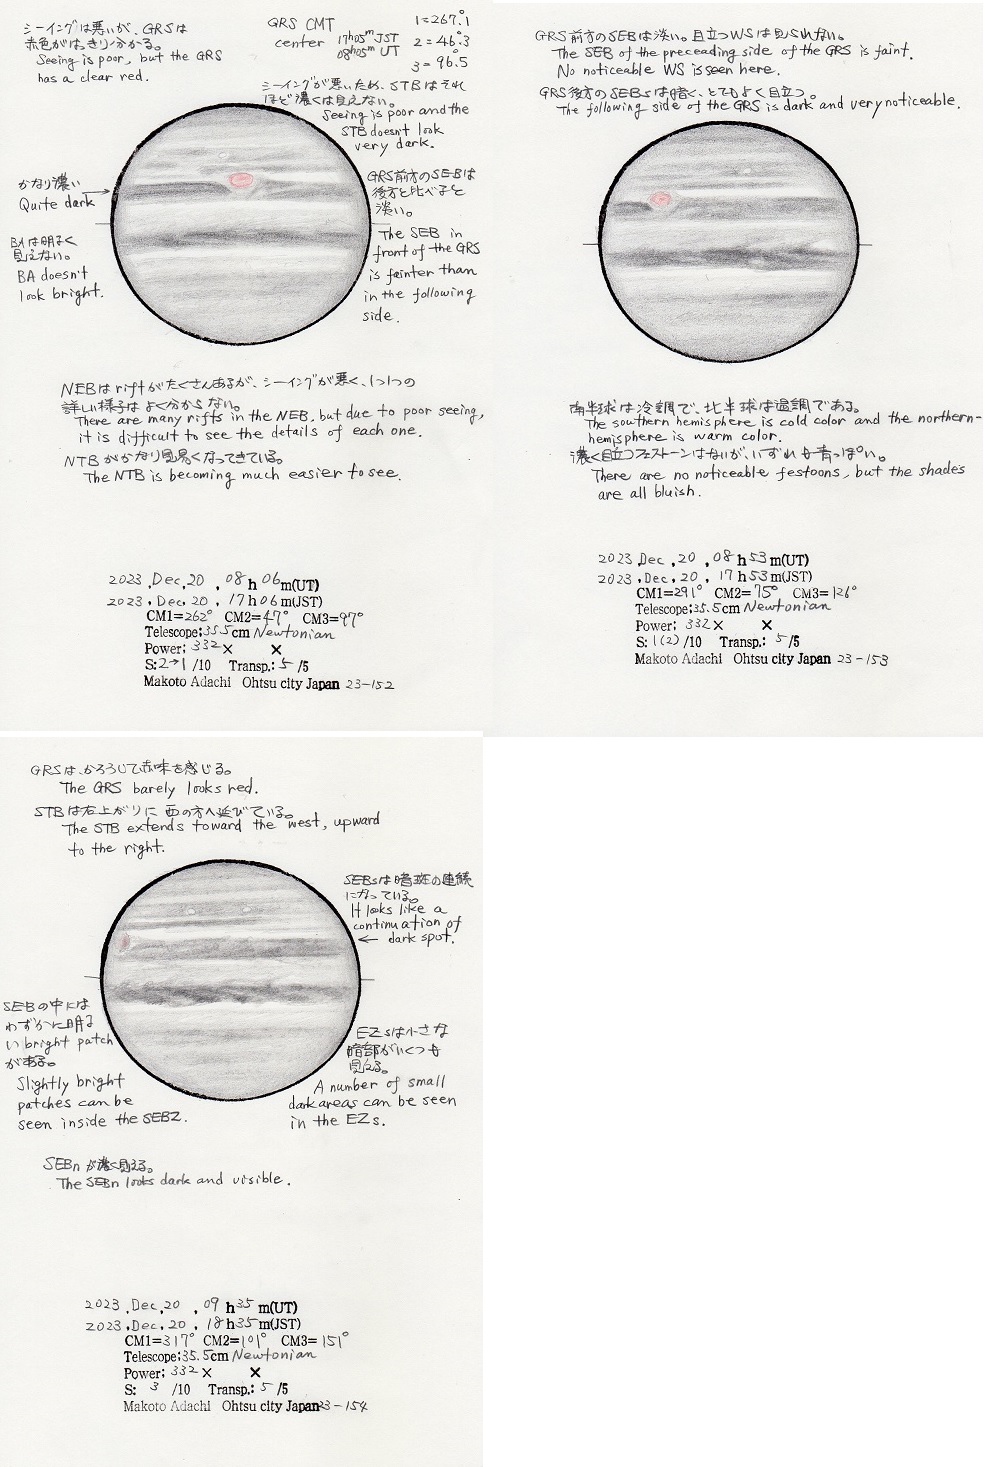 シーイングは悪いが、GRSは
赤色がはっきり分かる。
Seeing is poor, but the GRS
has a clear red.
GRS CMT
center
17h05m JST
08h05m UT
1=267.°1
2=46.°3
3=96.°5
シーイングが悪いため、STBはそれ
ほど濃くは見えない。
Seeing is poor and the
STB doesn't look
very dark.
かなり濃い
Quite dark
BAは明るく
見えない。
BA doesn't
look bright.
GRS前方のSEBは
後方と比べると
淡い。
The SEB in
front of the GRS
is fainter than
in the following
side.
NEBはriftがたくさんあるが、シーイングが悪く、1つ1つの
詳しい様子はよく分からない。
There are many rifts in the NEB, but due to poor seeing,
it is difficult to see the details of each one.
NTBがかなり見易くなってきている。
The NTB is becoming much easier to see.
2023, Dec, 20, 08h 06m(UT)
2023, Dec, 20, 17h 06m(JST)
CM1=262° CM2=47° CM3=97°
Telescope:35.5cm Newtonian
Power: 332× ×
S:2→1 /10 Transp.: 5 /5
Makoto Adachi Ohtsu city Japan 23-152
GRS前方のSEBは淡い。目立つWSは見られない。
The SEB of the preceading side of the GRS is faint.
No noticeable WS is seen here.
GRS後方のSEBsは暗く、とてもよく目立つ。
The following side of the GRS is dark and very noticeable.
南半球は冷調で、北半球は温調である。
The southern hemisphere is cold color and the northern-
hemisphere is warm color.
濃く目立つフェストーンはないが、いずれも青っぽい。
There are no noticeable festoons, but the shades
are all bluish.
2023, Dec, 20, 08h 53m(UT)
2023, Dec, 20, 17h 53m(JST)
CM1=291° CM2=75° CM3=126°
Telescope:35.5cm Newtonian
Power: 332× ×
S: 1(2)/10 Transp.: 5/5
Makoto Adachi Ohtsu city Japan 23-153
GRSは、かろうじて赤味を感じる。
The GRS barely looks red.
STBは右上がりに西の方へ延びている。
The STB extends toward the west, upward
to the right.
SEBsは暗斑の連続
になっている。
It looks like a
continuation of
← dark spot.
SEBの中には
わずかに明る
いbright patch
がある。
Slightly bright
patches can be
seen inside the SEBZ.
EZsは小さな
暗部がいくつも
見える。
A number of small
dark areas can be seen
in the EZs.
SEBnが濃く見える。
The SEBn looks dark and visible.
2023, Dec, 20, 09h 35m(UT)
2023, Dec, 20, 18h 35m(JST)
CM1=317° CM2=101° CM3=151°
Telescope:35.5cm Newtonian
Power: 332× ×
S: 3 /10 Transp.: 5 /5
Makoto Adachi Ohtsu city Japan 23-154